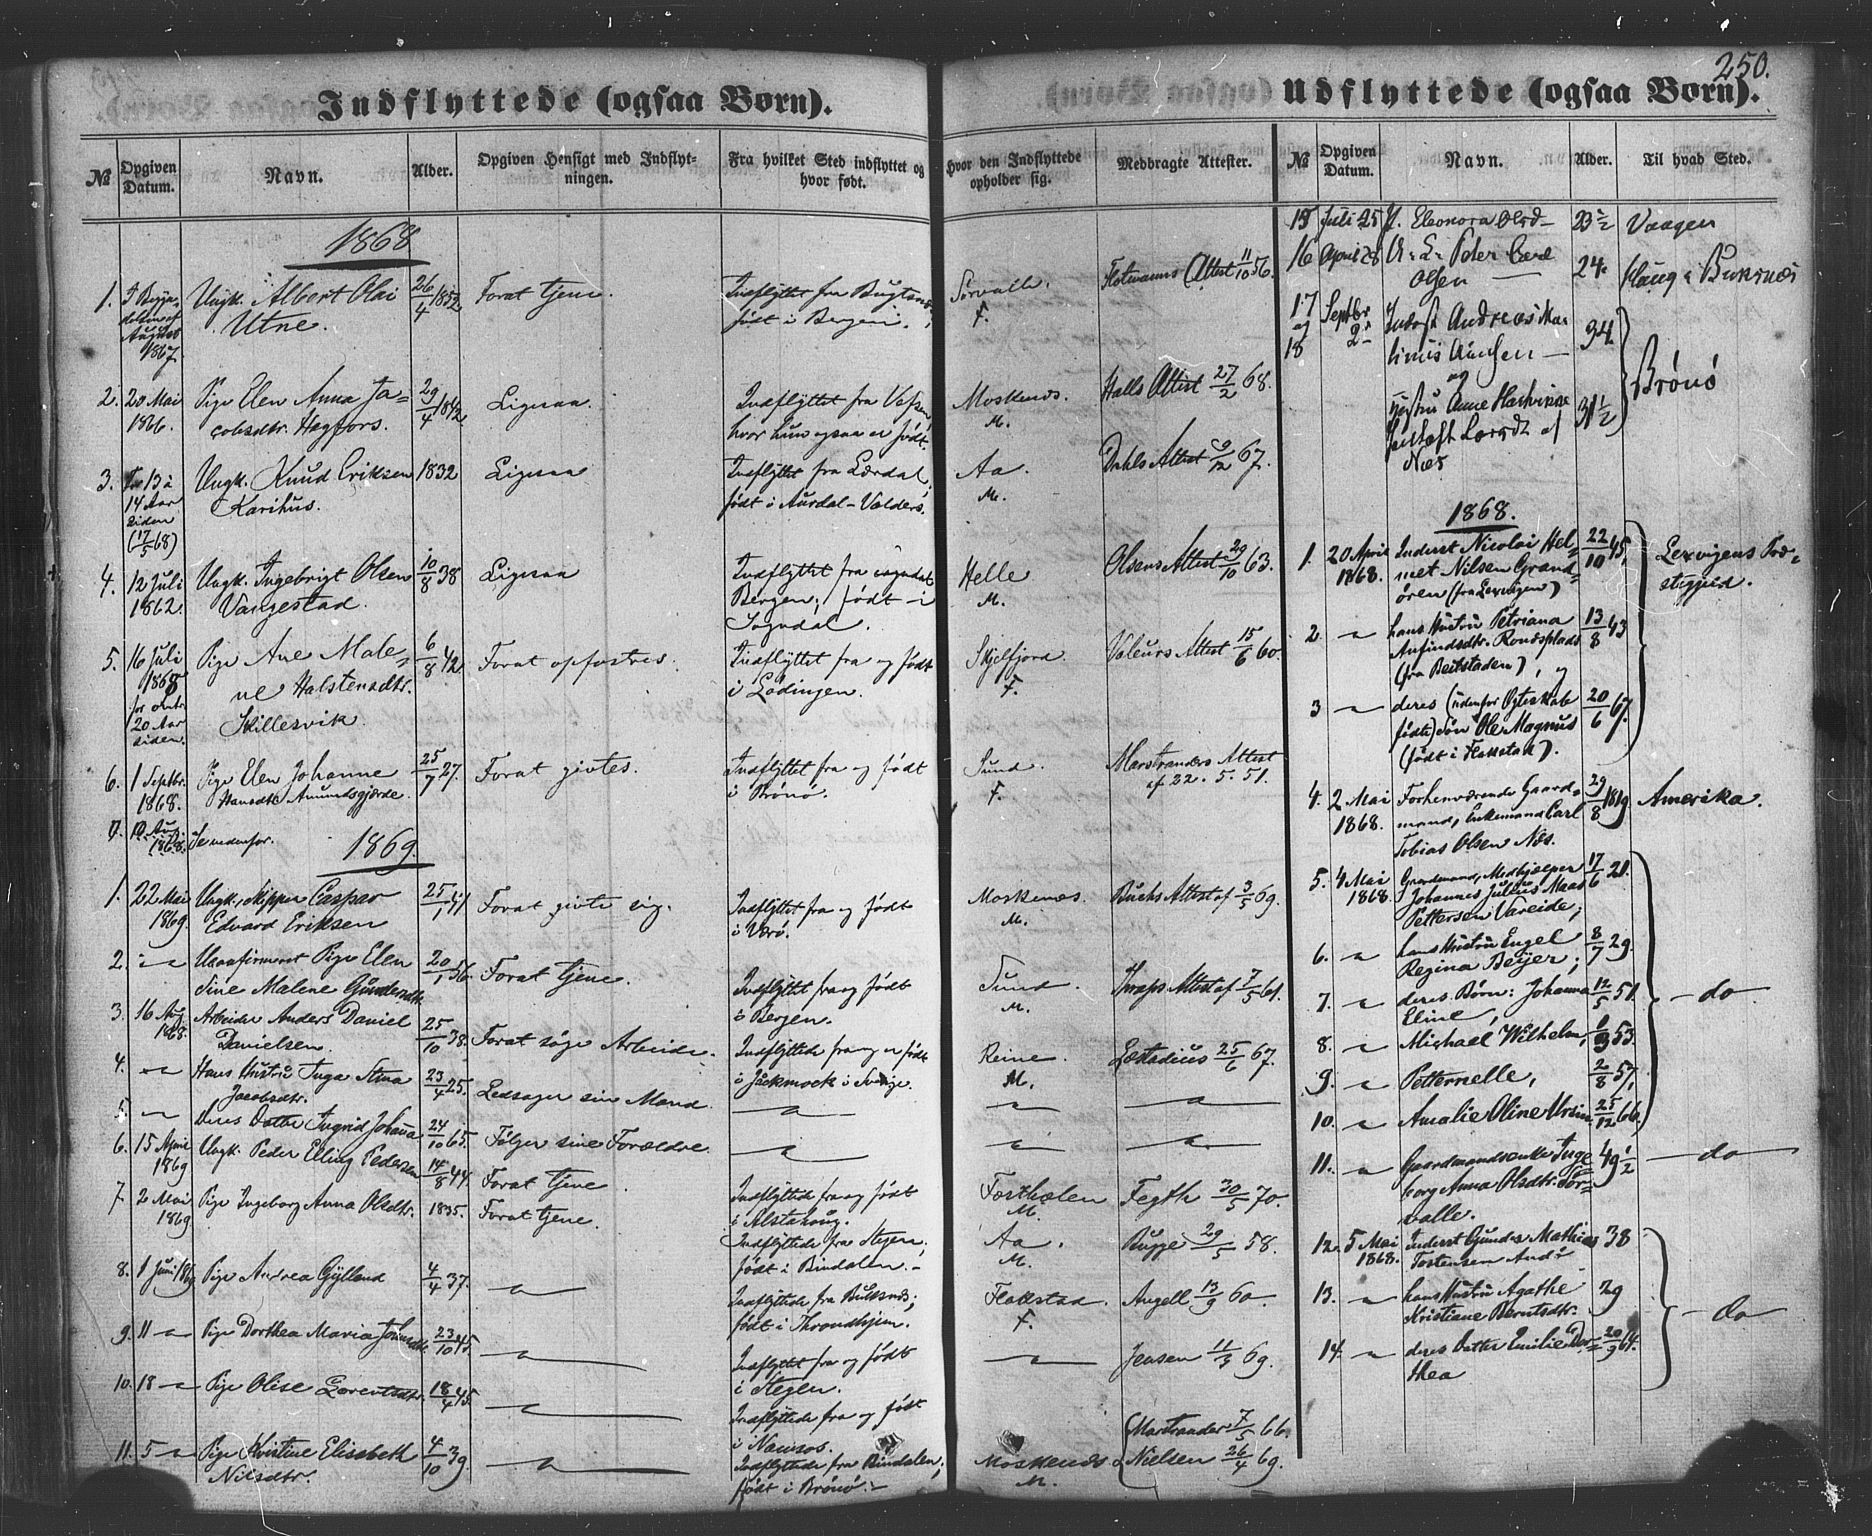 250.
Indflyttede (ogsaa Børn).
№
Opgiven Datum.
Navn.
Alder.
Opgiven Hensigt med Indflyt-
ningen.
Fra hvilket Sted indflyttet og
hvor født.
1868
1.
August
1867.
Ungk. Albert Olai
Utne.
26/4 1852
Forat tjene.
Indflyttet fra
født i Bergen.
2.
20 Mai
1866.
Pige Elen Anna Ja-
cobsdtr. Hegfors.
29/4 1842
Ligesaa.
Indflyttet fra Vefsen,
hvor hun ogsaa er født.
3.
13 à
14 Aar
siden
(17/5 68)
Ungk. Knud Eriksen
Karihus.
1832
Ligesaa
Indflyttet fra Lærdal,
født i Aurdal - Valders.
4.
12 Juli
1862.
Ungk. Ingebrigt Olsen
Vangestad.
10/8 38
Ligesaa
Indflyttet fra
Bergen; født i
Sogndal.
5.
16 Juli
1868
for omtr.
20 Aar
siden.
Pige Ane Male-
ne Halstensdtr.
Skillesvik.
6/8 42
Forat opfostres.
Indflyttet fra og født
i Lødingen.
6.
1 Septbr.
1868.
Pige Elen Johanne
Hansdtr. Amundsgjerde.
25/7 27.
Forat giftes.
Indflyttet fra og født
i Brønø.
7.
1868.
Se nedenfor.
1869.
1.
22 Mai
1869.
Ungk., Skipper Caspar
Edvard Eriksen
25/1 41
Forat gifte sig.
Indflyttet fra og født
i Værø.
2.
Uconfirmeret Pige Elen
Sine Malene Gundersdtr.
20/1 56.
Forat tjene.
Indflyttet fra og født
i Bergen.
3.
16 Aug.
1868.
Arbeider Anders Daniel
Danielsen.
25/10 38.
Forat søge Arbeide.
Indflyttede fra og er født
i Jockmock i Sverige.
4.
Hans Hustru Inga Stina
Jacobsdtr.
23/4 25.
Ledsager sin Mand.
5.
Deres Datter Ingrid Johanna
24/10 65.
Følger sine Forældre.
6.
15 April
1869
Ungk. Peder Elling Pedersen
14/8 44.
Forat tjene
Indflyttede fra og født
i Alstahoug.
7.
2 Mai
1869
Pige Ingeborg Anna Olsdtr.
1835.
Forat tjene.
Indflyttede fra Stegen;
født i Bindalen.
8.
1 Juni 1869
Pige Andrea Gylland
4/4 37.
Indflyttede fra Buksnæs;
født i Throndhjem.
9.
11
Pige Dorthea Maria
23/10 45.
Indflyttet fra og født
i Stegen.
10.
18
Pige Olise Lorentsdtr.
18/4 45.
Indflyttede fra og født
i Namsos.
11.
5
Pige Kristine Elisabeth
Nilsdtr.
4/10 39.
Indflyttede fra Bindalen;
født i Brønø.
Udflyttede (ogsaa Børn).
Hvor den Indflyttede
opholder sig.
Medbragte Attester.
Sørvalle.
F.
Flotmanns Attest 11/10 56.
Moskenes.
M.
Halls Attest 27/2 68.
Aa.
M.
Dahls Attest 9/12 67.
Helle
M.
Olsens Attest 29/10 63.
Skjelfjord.
F.
Valeurs Attest 15/6 60.
Sund
F.
Marstranders Attest
af 22. 5. 51.
Moskenæs.
M.
Buchs Attest af 3/5 69.
Sund
M.
Attest af 7/5 61.
Reine.
M.
Læstadius 25/6 67.
M.
Fegth 30/5 70.
Aa.
M.
Bugge 29/5 58.
Flakstad.
F.
Angell 13/9 60.
Jensen 11/3 69.
Marstrander 7/5 66
Moskenæs
M.
Nielsen 26/4 69.
№
Opgiven Datum.
Navn.
Alder.
Til hvad Sted.
15
Juli 25
P. Eleonora Olsd
23 1/2
Vaagen
16
April 28
Peder
Olsen
24
Houg i Buksnæs
17
og
18
Septbr
2
Indst Andreas Mar
34
og
Hustru Anne
af
Næs
31 1/2
Brønø
1868.
1.
20 April
1868.
Inderst Nicolai Hel-
met Nilsen Grand-
ören (fra Lexvigen)
22/10 45.
Lexvigens Præ-
stegjeld.
2.
hans Hustru Petriana
Anfindsdtr. Rondsplads
(fra Beitstaden), og
13/8 43
3
deres (udenfor Egteskab
fødte) Søn Ole Magnus
(født i Flakstad).
20/6 67.
4.
2 Mai
1868.
Forhenværende Gaard-
mand, Enkemand Carl
Tobias Olsen Næs.
29/8 1819
Amerika.
5.
4 Mai
1868.
Gaardmand, Medhjælper
Johannes Julius Maas
Pettersen Vareide;
17/6 21.
6.
hans Hustru Engel
Regina Beyer;
8/7 29.
7.
deres Børn: Johanna
Eline,
12/5 51.
do
8.
Michael Wilhelm,
53.
9.
Petternelle,
2/8 57,
10.
Amalie Oline Ursin.
25/12 66.
11.
Gaardmandsenke Inge-
borg Anna Olsdtr. Sør-
valle.
49 1/2
do
12.
5 Mai
1868.
Inderst Gunder Mathias
Tostensen Andö
38
13.
hans Hustru Agathe
Kristiane Berntsdtr.
29
do
14.
deres Datter Emilie Dor-
thea
20/9 64.